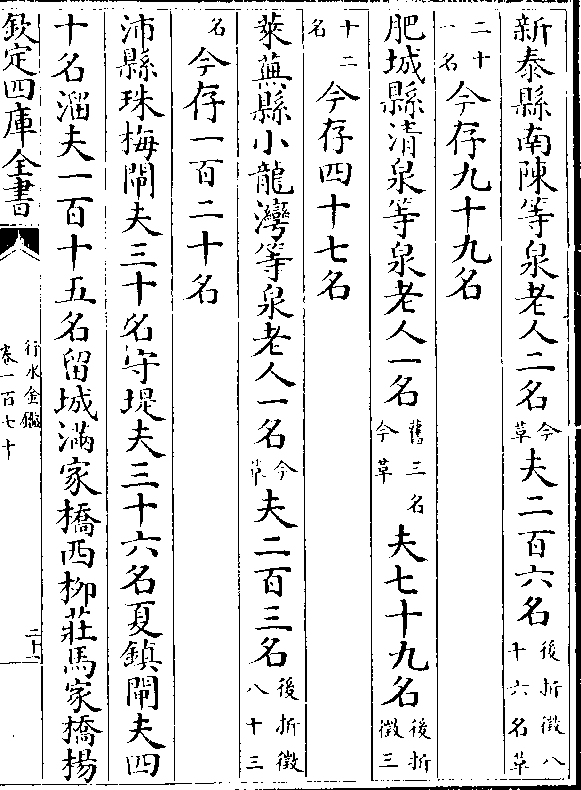 新泰縣南陳等泉老人二名今草夫二百六名後折徵八十六名草
二十一名今存九十九名
肥城縣清泉等泉老人一名舊三名今草夫七十九名後折徵三
十二名今存四十七名
萊蕪縣小龍灣等泉老人一名今草夫二百三名後折徵八十三
名今存一百二十名
沛縣珠梅閘夫三十名守堤夫三十六名夏鎮閘夫四
十名溜夫一百十五名留城滿家橋西柳莊馬家橋楊
欽定四庫全書
行水金鑑
卷一百七十
二十一